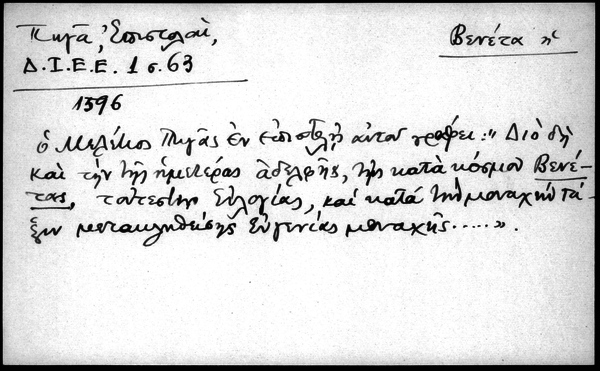 Πηγᾶ, Ἐπιστολαὶ,
Βενέτα ἡ
Δ.Ι.Ε.Ε. 1 σ. 63
1596
ὁ Μελέτιος Πηγᾶς ἐν ἐπιστολῇ αὐτοῦ γράφει: "Διὸ δὴ
καὶ τὴν τῆς ἡμετέρας ἀδελφῆς, τῆς κατὰ κόσμον Βενέ-
τας, τουτέστιν Εὐλογίας, καὶ κατὰ τὴν μοναχὴν τά-
ξιν μετακληθείσης Εὐγενίας μοναχῆς.....».